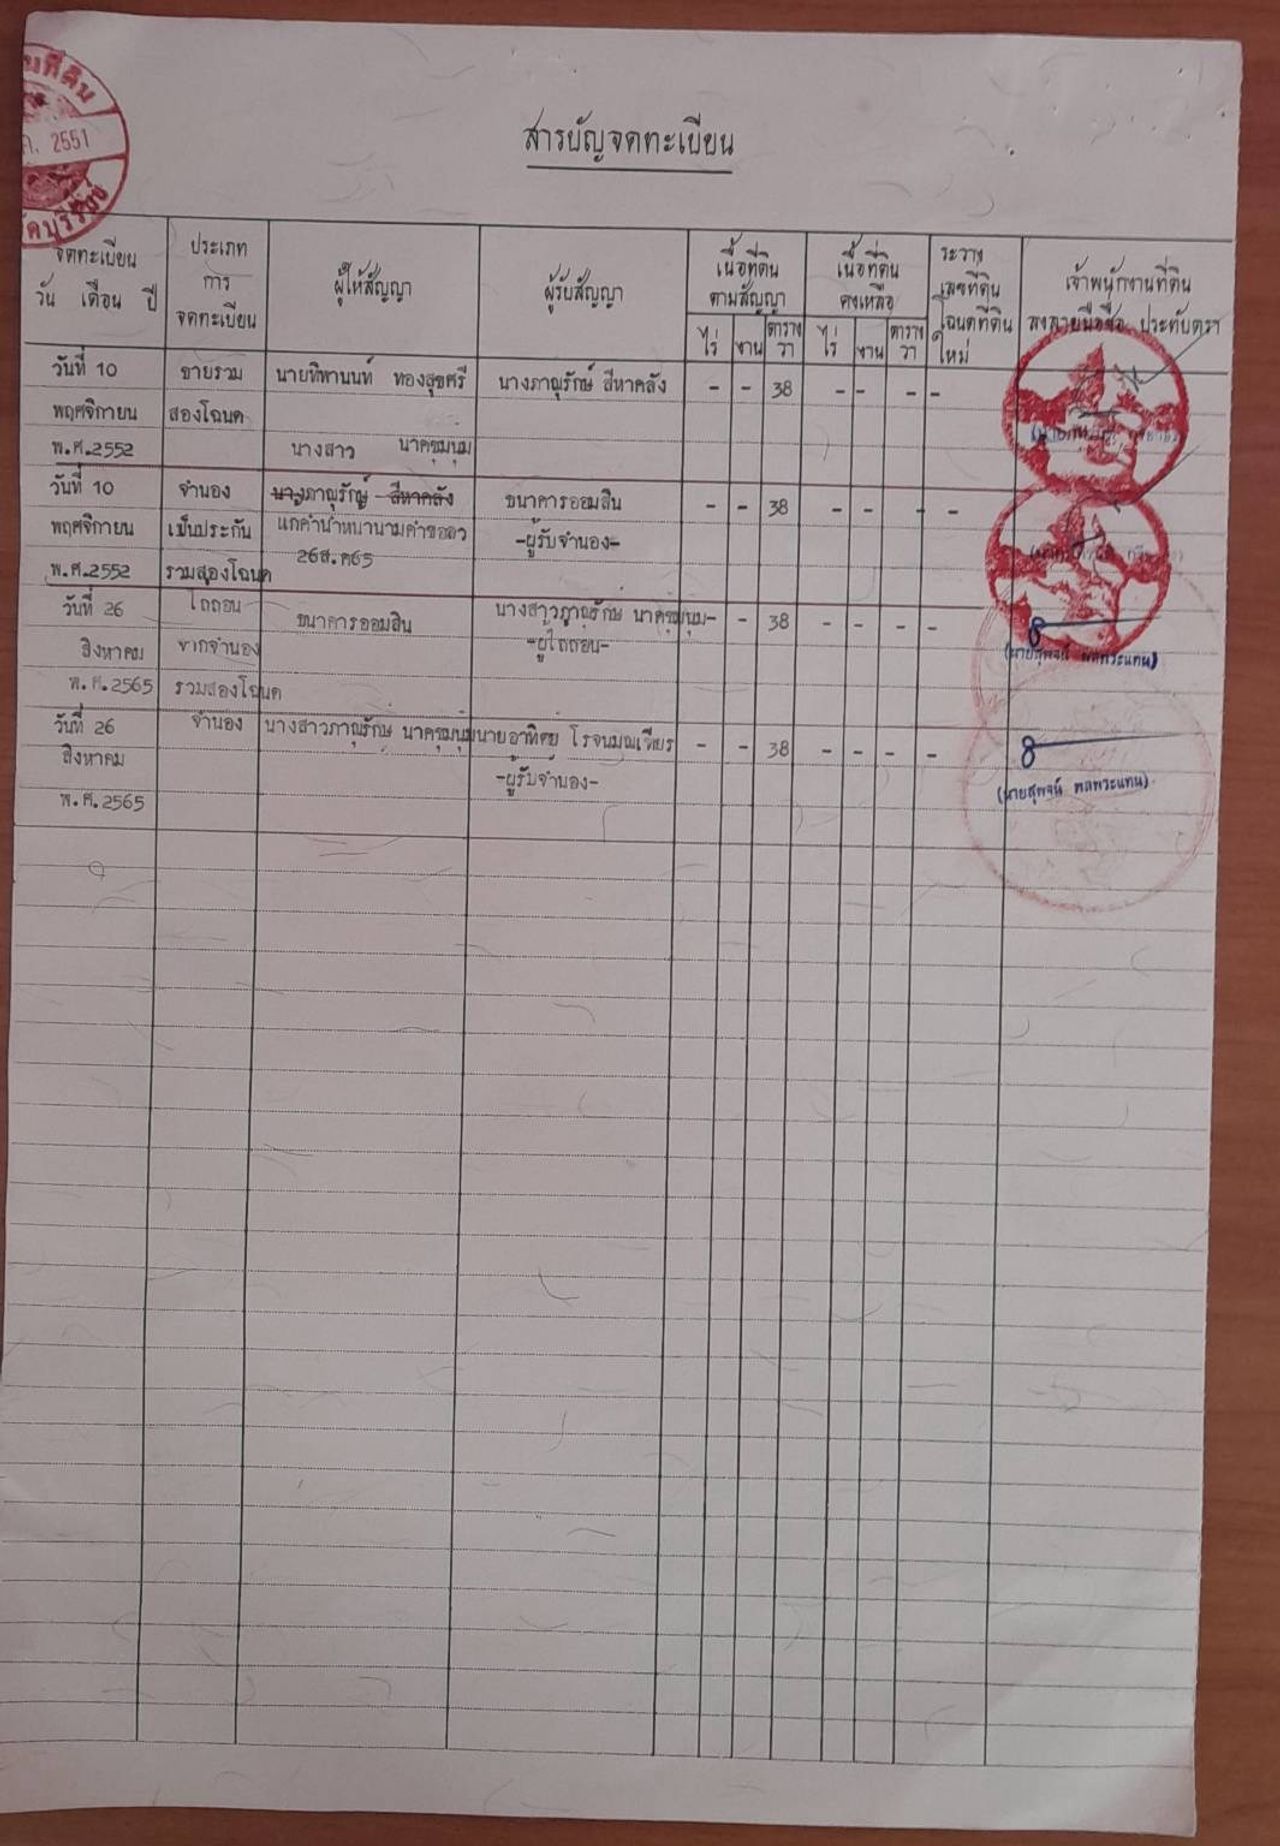 มที่ดิน
ค. 2551
ดบุรีรัมย์
สารบัญจดทะเบียน
จดทะเบียน
วัน เดือน ปี
ประเภท
การ
จดทะเบียน
ผู้ให้สัญญา
ผู้รับสัญญา
เนื้อที่ดิน
ตามสัญญา
ไร่ งาน ตาราง
วา
เนื้อที่ดิน
คงเหลือ
ไร่ งาน ตาราง
วา
ระวาง
เลขที่ดิน
โฉนดที่ดิน
ใหม่
เจ้าพนักงานที่ดิน
ลงลายมือชื่อ ประทับตรา
วันที่ 10 ขายรวม นายทิพานนท์ ทองสุขศรี นางภาณุรักษ์ สีหาคลัง - - 38 - - - -
พฤศจิกายน สองโฉนด
พ.ศ.2552 นางสาว นาคชุมนุม
วันที่ 10 จำนอง นางภาณุรักษ์ สีหาคลัง ธนาคารออมสิน - - 38 - - - -
พฤศจิกายน เป็นประกัน แก้คำนำหน้านามคำขอลว -ผู้รับจำนอง-
พ.ศ.2552 รวมสองโฉนด 26ส.ค65
วันที่ 26 ไถ่ถอน ธนาคารออมสิน นางสาวภาณุรักษ์ นาคชุมนุม - - 38 - - - -
สิงหาคม จากจำนอง -ผู้ไถ่ถอน- (นายสุพจน์ พลพระแทน)
พ.ศ.2565 รวมสองโฉนด
วันที่ 26 จำนอง นางสาวภาณุรักษ์ นาคชุมนุม นายอาทิตย์ โรจนมณเฑียร - - 38 - - - -
สิงหาคม -ผู้รับจำนอง- (นายสุพจน์ พลพระแทน)
พ.ศ.2565